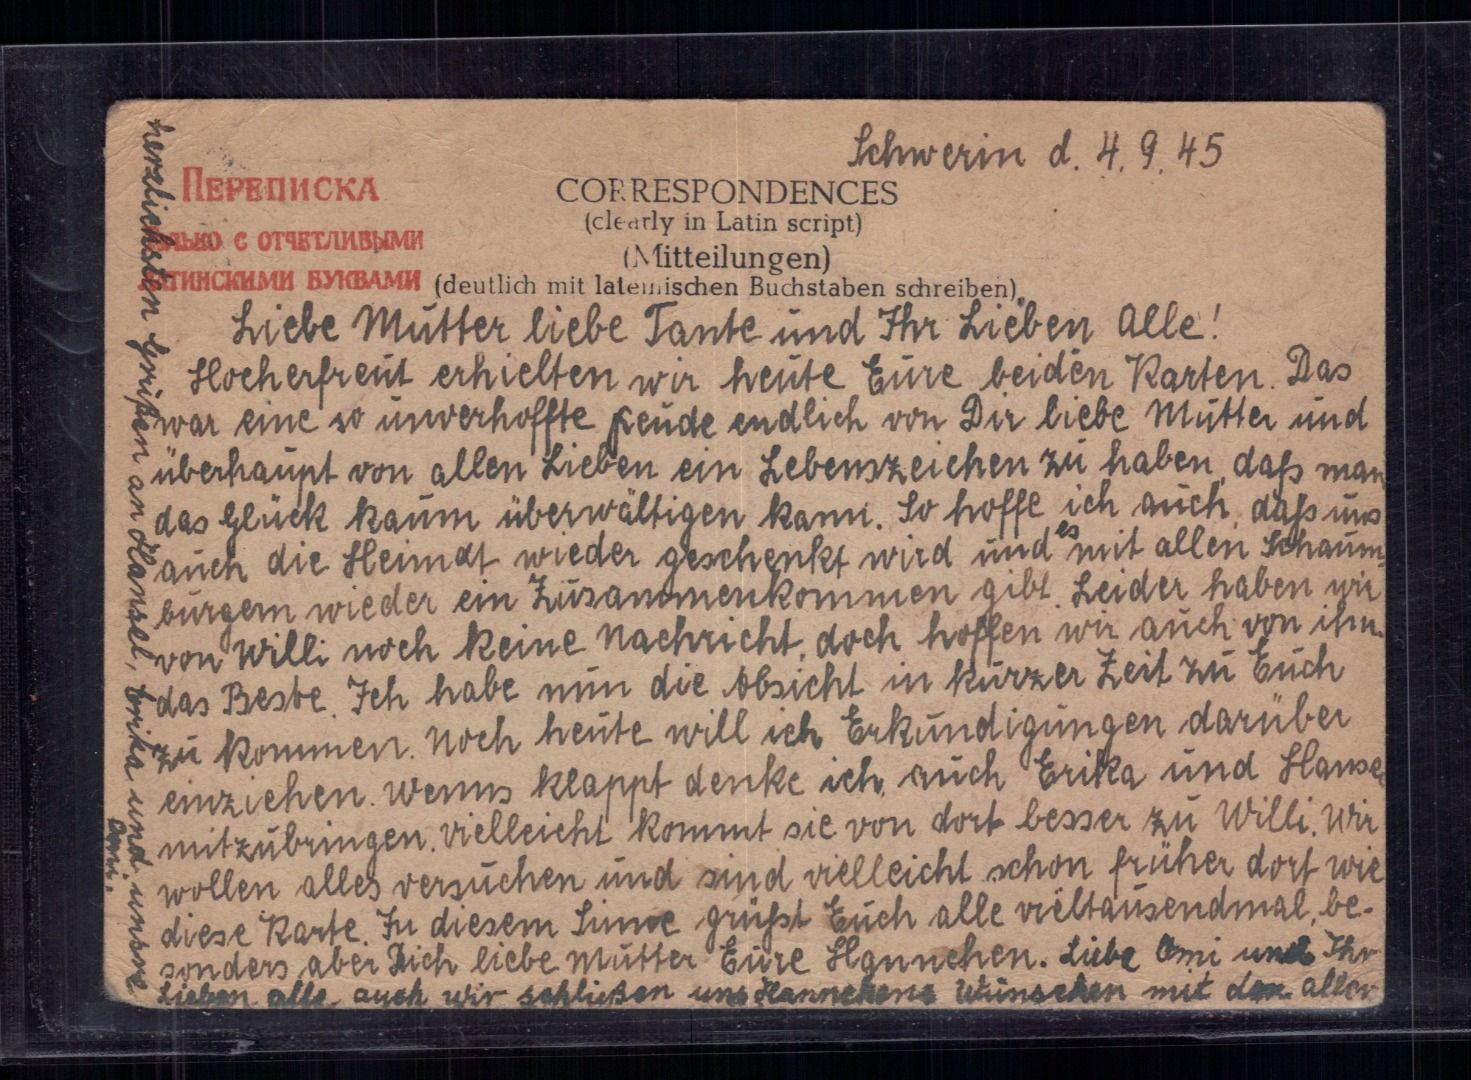 Schwerin d. 4. 9. 45
ПЕРЕПИСКА
С ОТЧЕТЛИВЫМИ
БУКВАМИ
CORRESPONDENCES
(clearly in Latin script)
(Mitteilungen)
(deutlich mit lateinischen Buchstaben schreiben)
Liebe Mutter liebe Tante und Ihr Lieben Alle!
Hocherfreut erhielten wir heute Eure beiden Karten. Das
war eine so unverhoffte Freude endlich von Dir liebe Mutter und
überhaupt von allen Lieben ein Lebenszeichen zu haben, daß man
das Glück kaum überwältigen kann. So hoffe ich auch, daß uns
auch die Heimat wieder geschenkt wird und es mit allen Schaum-
burgern wieder ein Zusammenkommen gibt. Leider haben wir
von Willi noch keine Nachricht, doch hoffen wir auch von ihm
das Beste. Ich habe nun die Absicht in kurzer Zeit zu Euch
zu kommen. Noch heute will ich Erkundigungen darüber
einziehen. Wenns klappt denke ich, auch Erika und
mitzubringen. Vielleicht kommt sie von dort besser zu Willi. Wir
wollen alles versuchen und sind vielleicht schon früher dort wie
diese Karte. In diesem Sinne grüßt Euch alle vieltausendmal, be-
sonders aber Dich liebe Mutter Eure Hannchen. Liebe Omi und Ihr
Lieben alle auch wir schließen uns Hannchens Wünschen mit den aller
herzlichsten Grüßen an Hansel, Erika und unsere
Omi.